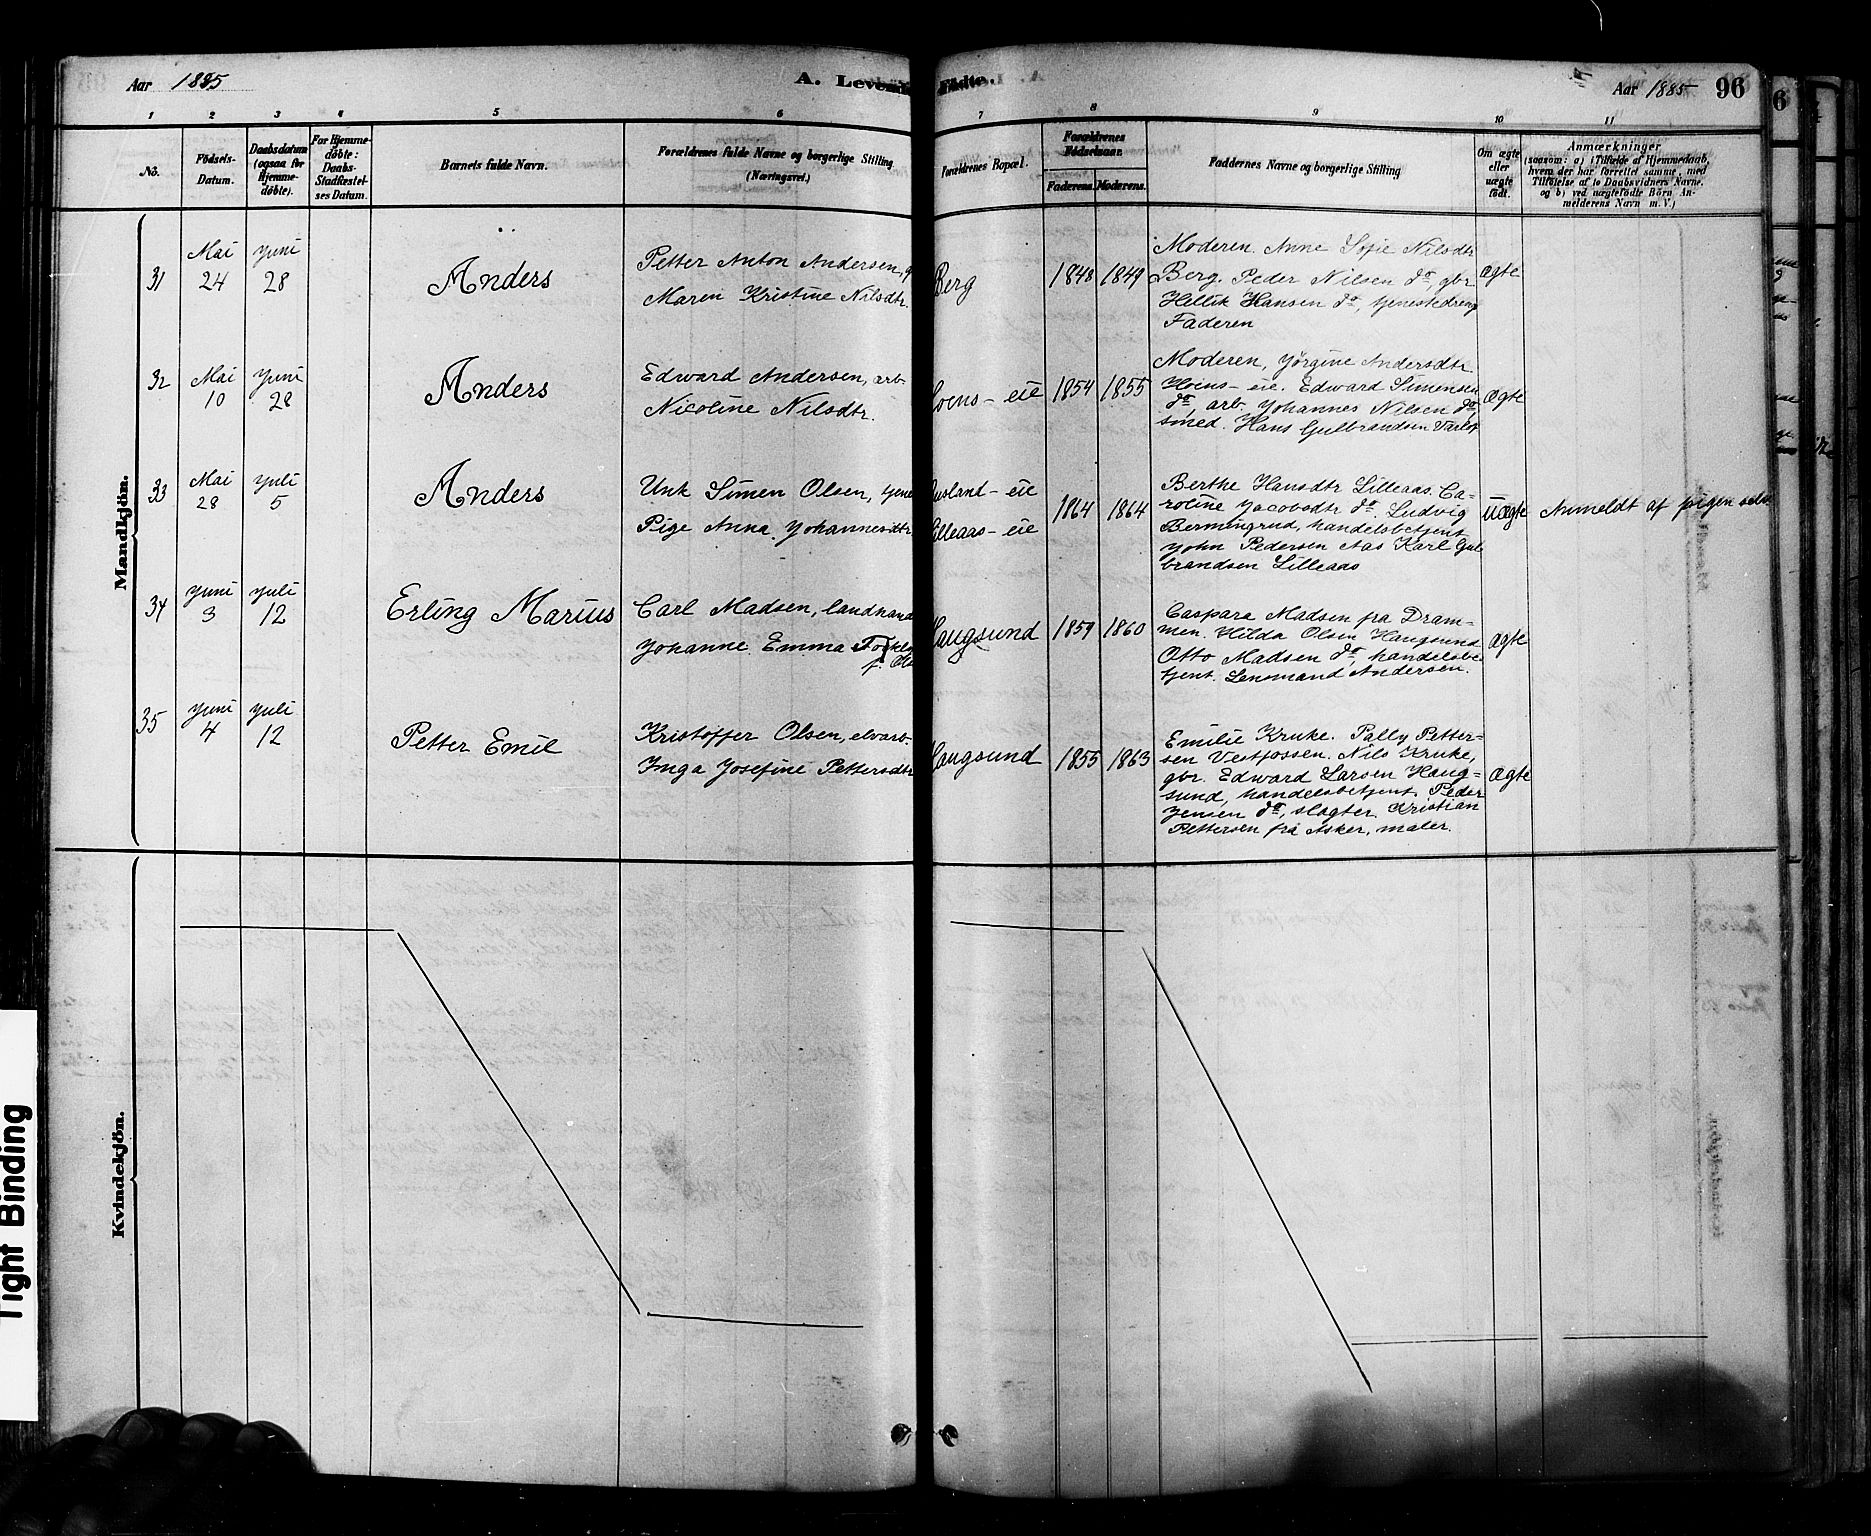 Aar 1885
A. Levende Fødte.
Aar 1885
96
1 2 3 4 5 6 7 8 9 10 11
No.
Fødsels-
Datum.
Daabsdatum
(ogsaa for
Hjemme-
døbte).
For Hjemme-
døbte:
Daabs-
Stadfæstel-
ses Datum.
Barnets fulde Navn.
Forældrenes fulde Navne og borgerlige Stilling
(Næringsvei.)
Forældrenes Bopæl.
Forældrenes
Fødselsaar.
Faderens. Moderens.
Faddernes Navne og borgerlige Stilling
Om ægte
eller
uægte
født.
Anmærkninger
(saasom: a) i Tilfælde af Hjemmedaab,
hvem der har forrettet samme, med
Tilføielse af to Daabsvidners Navne.
og b) ved uægtefødte Børn An-
melderens Navn m. V.)
Mandkjön.
31
Mai
24
Juni
28
Anders
Petter Anton Andersen, g
Maren Kristine Nilsdtr.
Berg
1848 1849
Moderen. Anne Sofie Nilsdtr
Berg. Peder Nilsen do, gbr
Hellik Hansen do, tjenestedreng
Faderen
Ægte
32
Mai
10
Juni
28
Anders
Edward Andersen, arb.
Nicoline Nilsdtr.
Hoens-eie
1854 1855
Moderen, Jørgine Andersdtr
Hoens-eie. Edward Simensen
do, arb. Johannes Nilsen do,
smed. Hans Gulbrandsen Varlo
Ægte
33
Mai
28
Juli
5
Anders
Unk Simen Olsen, tjene
Pige Anna Johannesdtr.
usland-eie
Lilleaas-eie
1864 1864
Berthe Hansdtr Lilleaas. Ca-
roline Jacobsdtr do. Ludvig
Bermingrud, handelsbetjent
John Pedersen Aas Karl Gul
brandsen Lilleaas
Uægte
Anmeldt af pigen selv
34
Juni
3
Juli
12
Erling Marius
Carl Madsen, landhand
Johanne Emma
Haugsund
1859 1860
Caspara Madsen fra Dram-
men. Hilda Olsen Haugsund
Otto Madsen do, handelsbe-
tjent. Lensmand Andersen.
Ægte
35
Juni
4
Juli
12
Petter Emil
Kristoffer Olsen, elvarb.
Inga Josefine Pettersdtr
Haugsund
1855 1863
Emilie Kruke. Pally Petter-
sen Vestfossen. Nils Kruke,
gbr. Edward Larsen Haug-
sund, handelsbetjent. Peder
Jensen do, slagter. Kristian
Pettersen fra Asker, maler.
Ægte
Kvindekjön.
Tight Binding